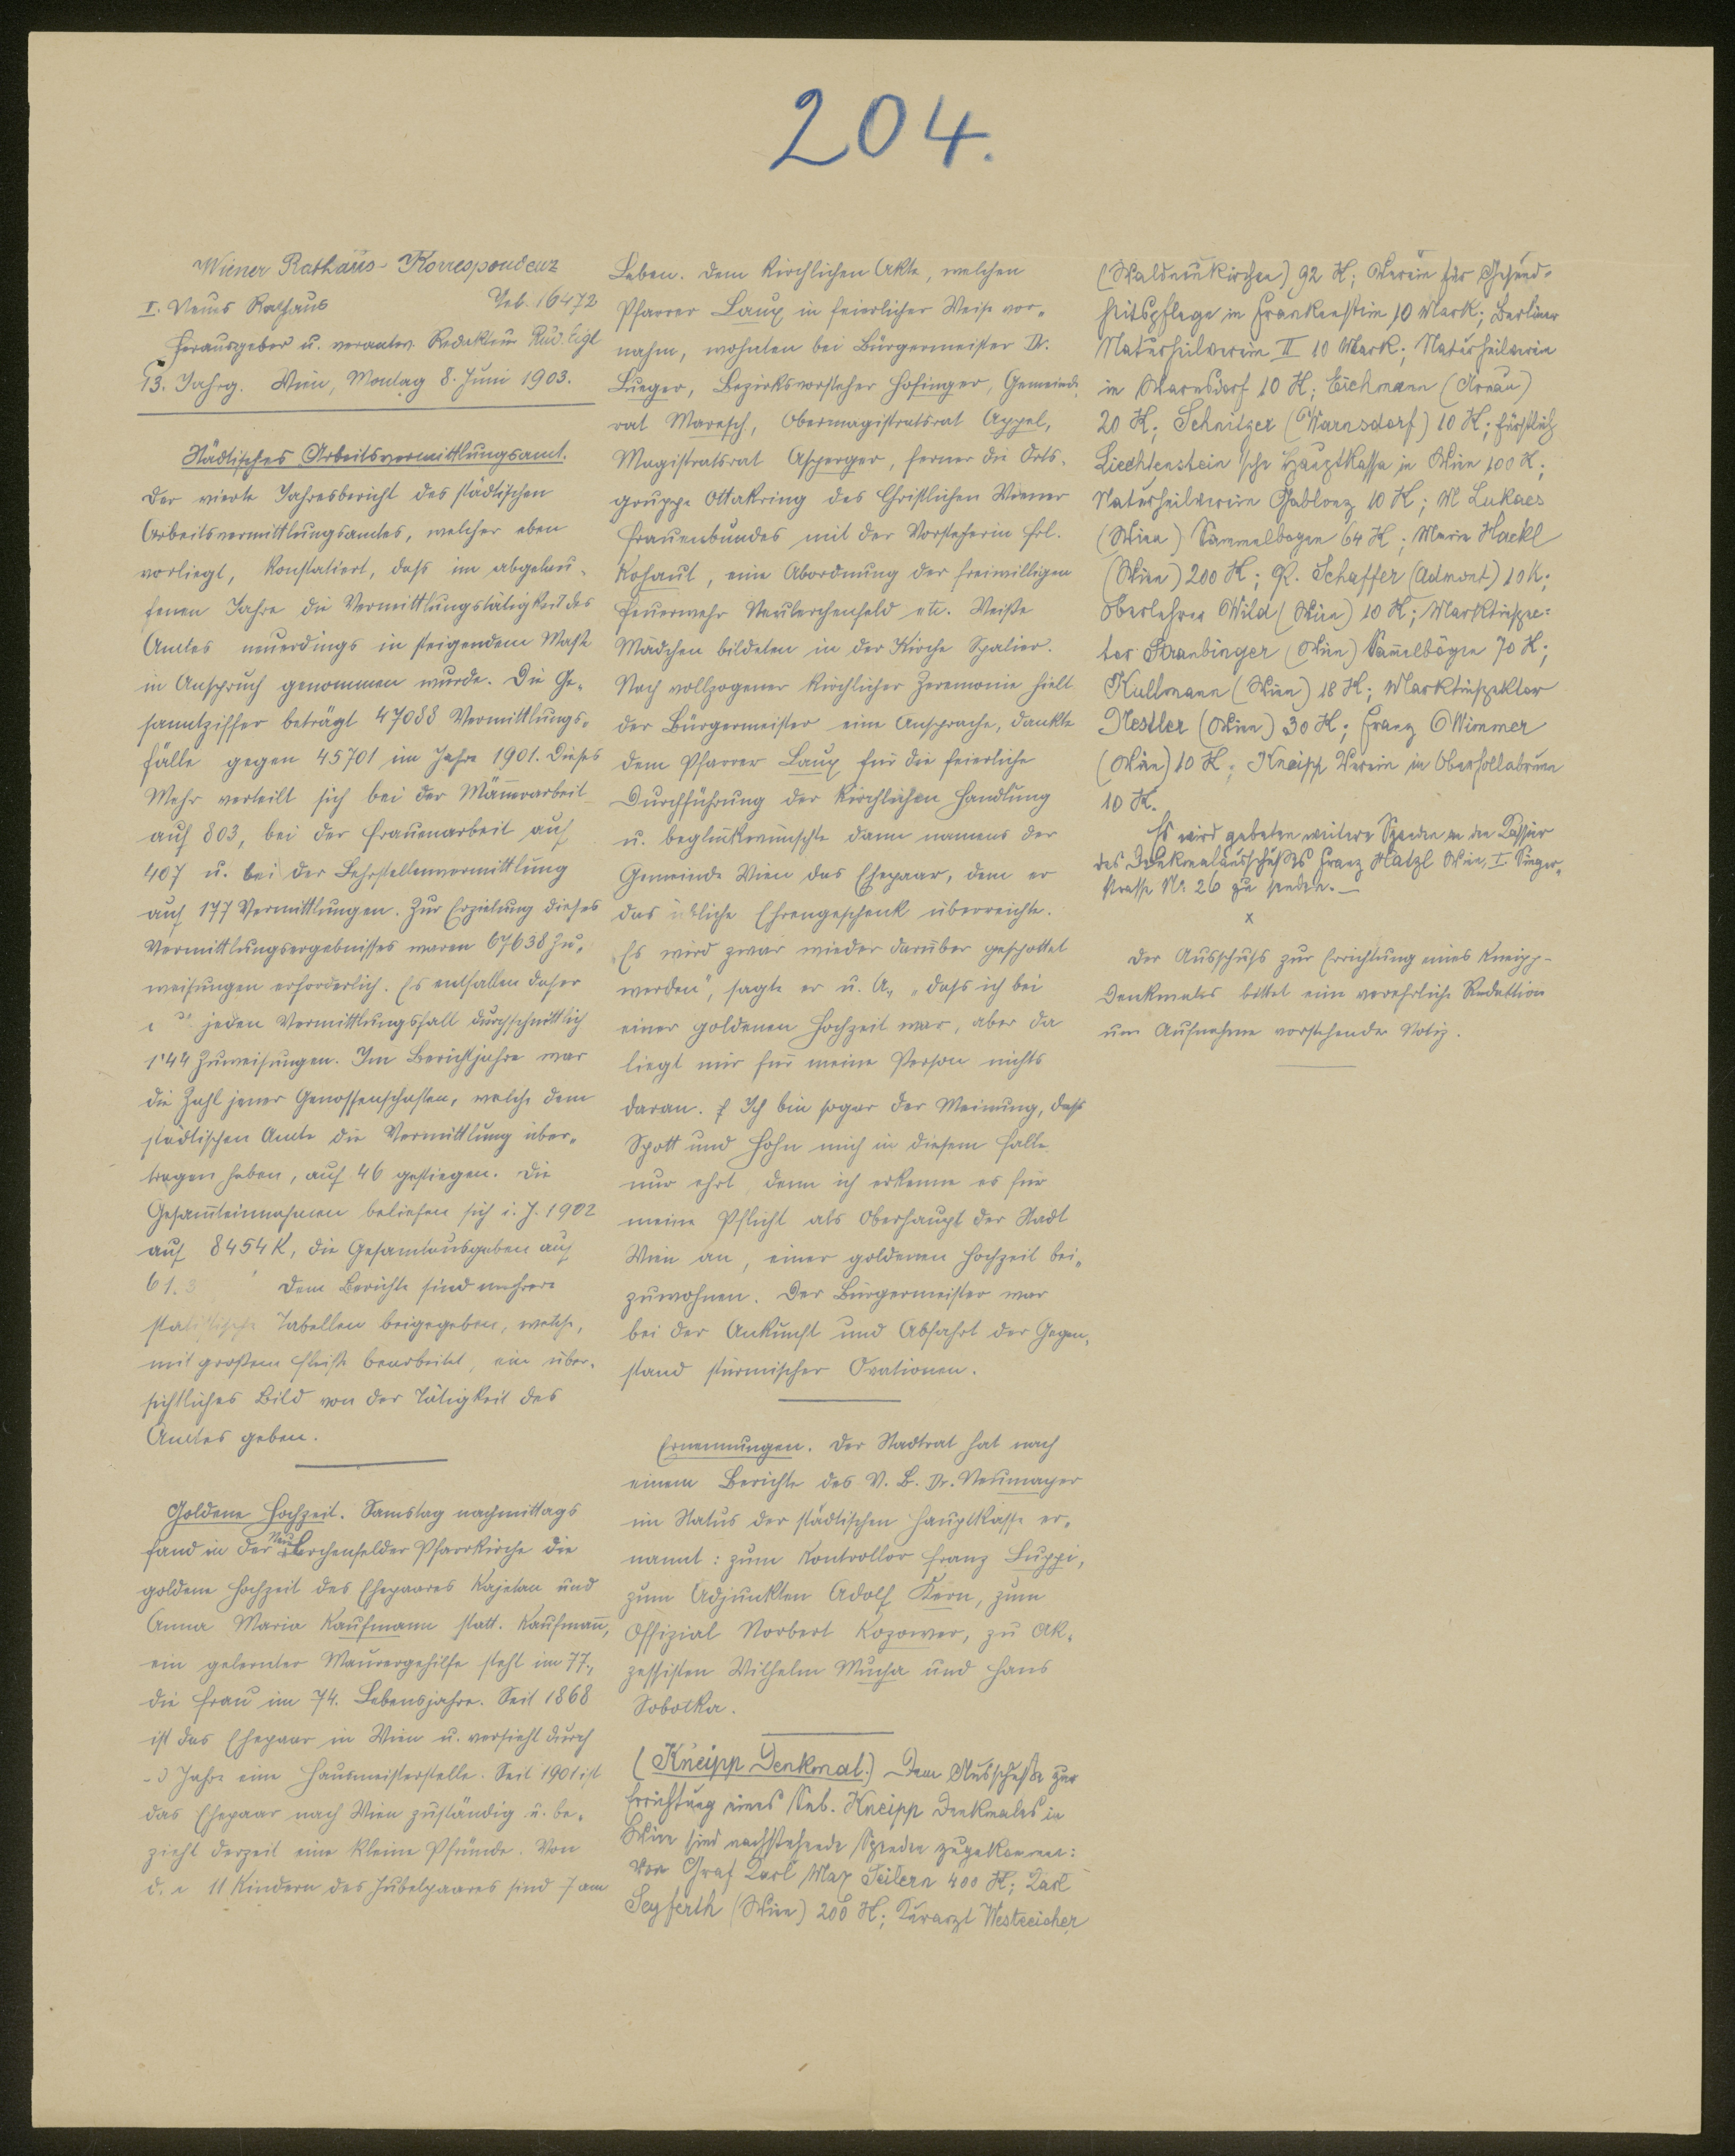 204.
Wiener Rathaus-Korrespondenz
I. Neues Rathaus Tel. 16472
Herausgeber u. verantw. Redakteur Rud. Eigl
13. Jahrg. Wien, Montag 8. Juni 1903.
Städtisches Arbeitsvermittlungsamt.
Der vierte Jahresbericht des städtischen
Arbeitsvermittlungsamtes, welcher eben
vorliegt, konstatiert, daß im abgelau-
fenen Jahre die Vermittlungstätigkeit des
Amtes neuerdings in steigendem Maße
in Anspruch genommen wurde. Die Ge-
samtziffer beträgt 47088 Vermittlungs-
fälle gegen 45701 im Jahre 1901. Dieses
Mehr verteilt sich bei der Männerarbeit
auf 803, bei der Frauenarbeit auf
407 u. bei der Lehrstellenvermittlung
auf 177 Vermittlungen. Zur Erzielung dieses
Vermittlungsergebnisses waren 67638 Zu-
weisungen erforderlich. Es entfallen daher
jeden Vermittlungsfall durchschnittlich
1'44 Zuweisungen. Im Berichtjahre war
die Zahl jener Genossenschaften, welche dem
städtischen Amte die Vermittlung über-
tragen haben, auf 46 gestiegen. Die
Gesam̄teinnahmen beliefen sich i. J. 1902
auf 8454 K, die Gesamtausgaben auf
61.3 Dem Berichte sind mehrere
statistische Tabellen beigegeben, welche,
mit großem Fleiße bearbeitet, ein über-
sichtliches Bild von der Tätigkeit des
Amtes geben.
Goldene Hochzeit. Samstag nachmittags
fand in der Neulerchenfelder Pfarrkirche die
goldene Hochzeit des Ehepaares Kajetan und
Anna Maria Kaufmann statt. Kaufman̄,
ein gelernter Maurergehilfe steht im 77.,
die Frau im 74. Lebensjahre. Seit 1868
ist das Ehepaar in Wien u. versieht durch
Jahre eine Hausmeisterstelle. Seit 1901 ist
das Ehepaar nach Wien zuständig u. be-
zieht derzeit eine kleine Pfründe. Von
11 Kindern des Jubelpaares sind 7 am
Leben. Dem kirchlichen Akte, welchen
Pfarrer Laux in feierlicher Weise vor-
nahm, wohnten bei Bürgermeister Dr.
Lueger, Bezirksvorsteher Hofinger, Gemeinde-
rat Maresch, Obermagistratsrat Appel,
Magistratsrat Asperger, ferner die Orts-
gruppe Ottakring des Christlichen Wiener
Frauenbundes mit der Vorsteherin Frl.
Kohaut, eine Abordnung der freiwilligen
Feuerwehr Neulerchenfeld etc. Weiße
Mädchen bildeten in der Kirche Spalier.
Nach vollzogener kirchlicher Zeremonie hielt
der Bürgermeister eine Ansprache, dankte
dem Pfarrer Laux für die feierliche
Durchführung der kirchlichen Handlung
u. beglückwünschte dann namens der
Gemeinde Wien das Ehepaar, dem er
das übliche Ehrengeschenk überreichte.
„Es wird zwar wieder darüber gespottet
werden", sagte er u. A., „daß ich bei
einer goldenen Hochzeit war, aber da
liegt mir für meine Person nichts
daran. Ich bin sogar der Meinung, daß
Spott und Hohn mich in diesem Falle
nur ehrt, denn ich erkenne es für
meine Pflicht als Oberhaupt der Stadt
Wien an, einer goldenen Hochzeit bei-
zuwohnen. Der Bürgermeister war
bei der Ankunft und Abfahrt der Gegen-
stand stürmischer Ovationen.
Ernennungen. Der Stadtrat hat nach
einem Berichte des V. B. Dr. Neumayer
im Status der städtischen Hauptkasse er-
nannt: zum Kontrollor Franz Luppi,
zum Adjunkten Adolf Kern, zum
Offizial Norbert Kozower, zu Ak-
zessisten Wilhelm Mucha und Hans
Sobotka.
(Kneipp Denkmal.) Dem Ausschuße zur
Errichtung eines Seb. Kneipp Denkmales in
Wien sind nachstehende Spenden zugekommen:
Von Graf Karl Max Seilern 400 K; Karl
Seyferth (Wien) 200 K; Kurarzt Westreicher
(Waldneukirchen) 92 K; Verein für Gesund-
heitspflege in Frankenstein 10 Mark; Berliner
Naturheilverein II 10 Mark; Naturheilverein
in Warnsdorf 10 K; Eichmann (Arnau)
20 K; Schnitzer (Warnsdorf) 10 K; fürstlich
Liechtenstein'sche Hauptkassa in Wien 100 K;
Naturheilverein Gablonz 10 K; M Lukacs
(Wien) Sammelbogen 64 K; Marie Hackl
(Wien) 200 K; R. Schaffer (Admont) 10 K;
Oberlehrer Wild (Wien) 10 K; Marktinspec-
tor Stranbinger (Wien) Sam̄elbögen 70 K;
Kullmann (Wien) 18 K; Marktinspektor
Nestler (Wien) 30 K; Franz Wimmer
(Wien) 10 K; Kneipp Verein in Oberhollabrunn
10 K.
Es wird gebeten weitere Spenden an den Kassier
des Denkmalausschußes Franz Hatzl Wien, I. Singer-
strasse Nr. 26 zu senden.
x
Der Ausschuß zur Errichtung eines Kneipp-
Denkmales bittet eine verehrliche Redaktion
um Aufnahme vorstehender Notiz.